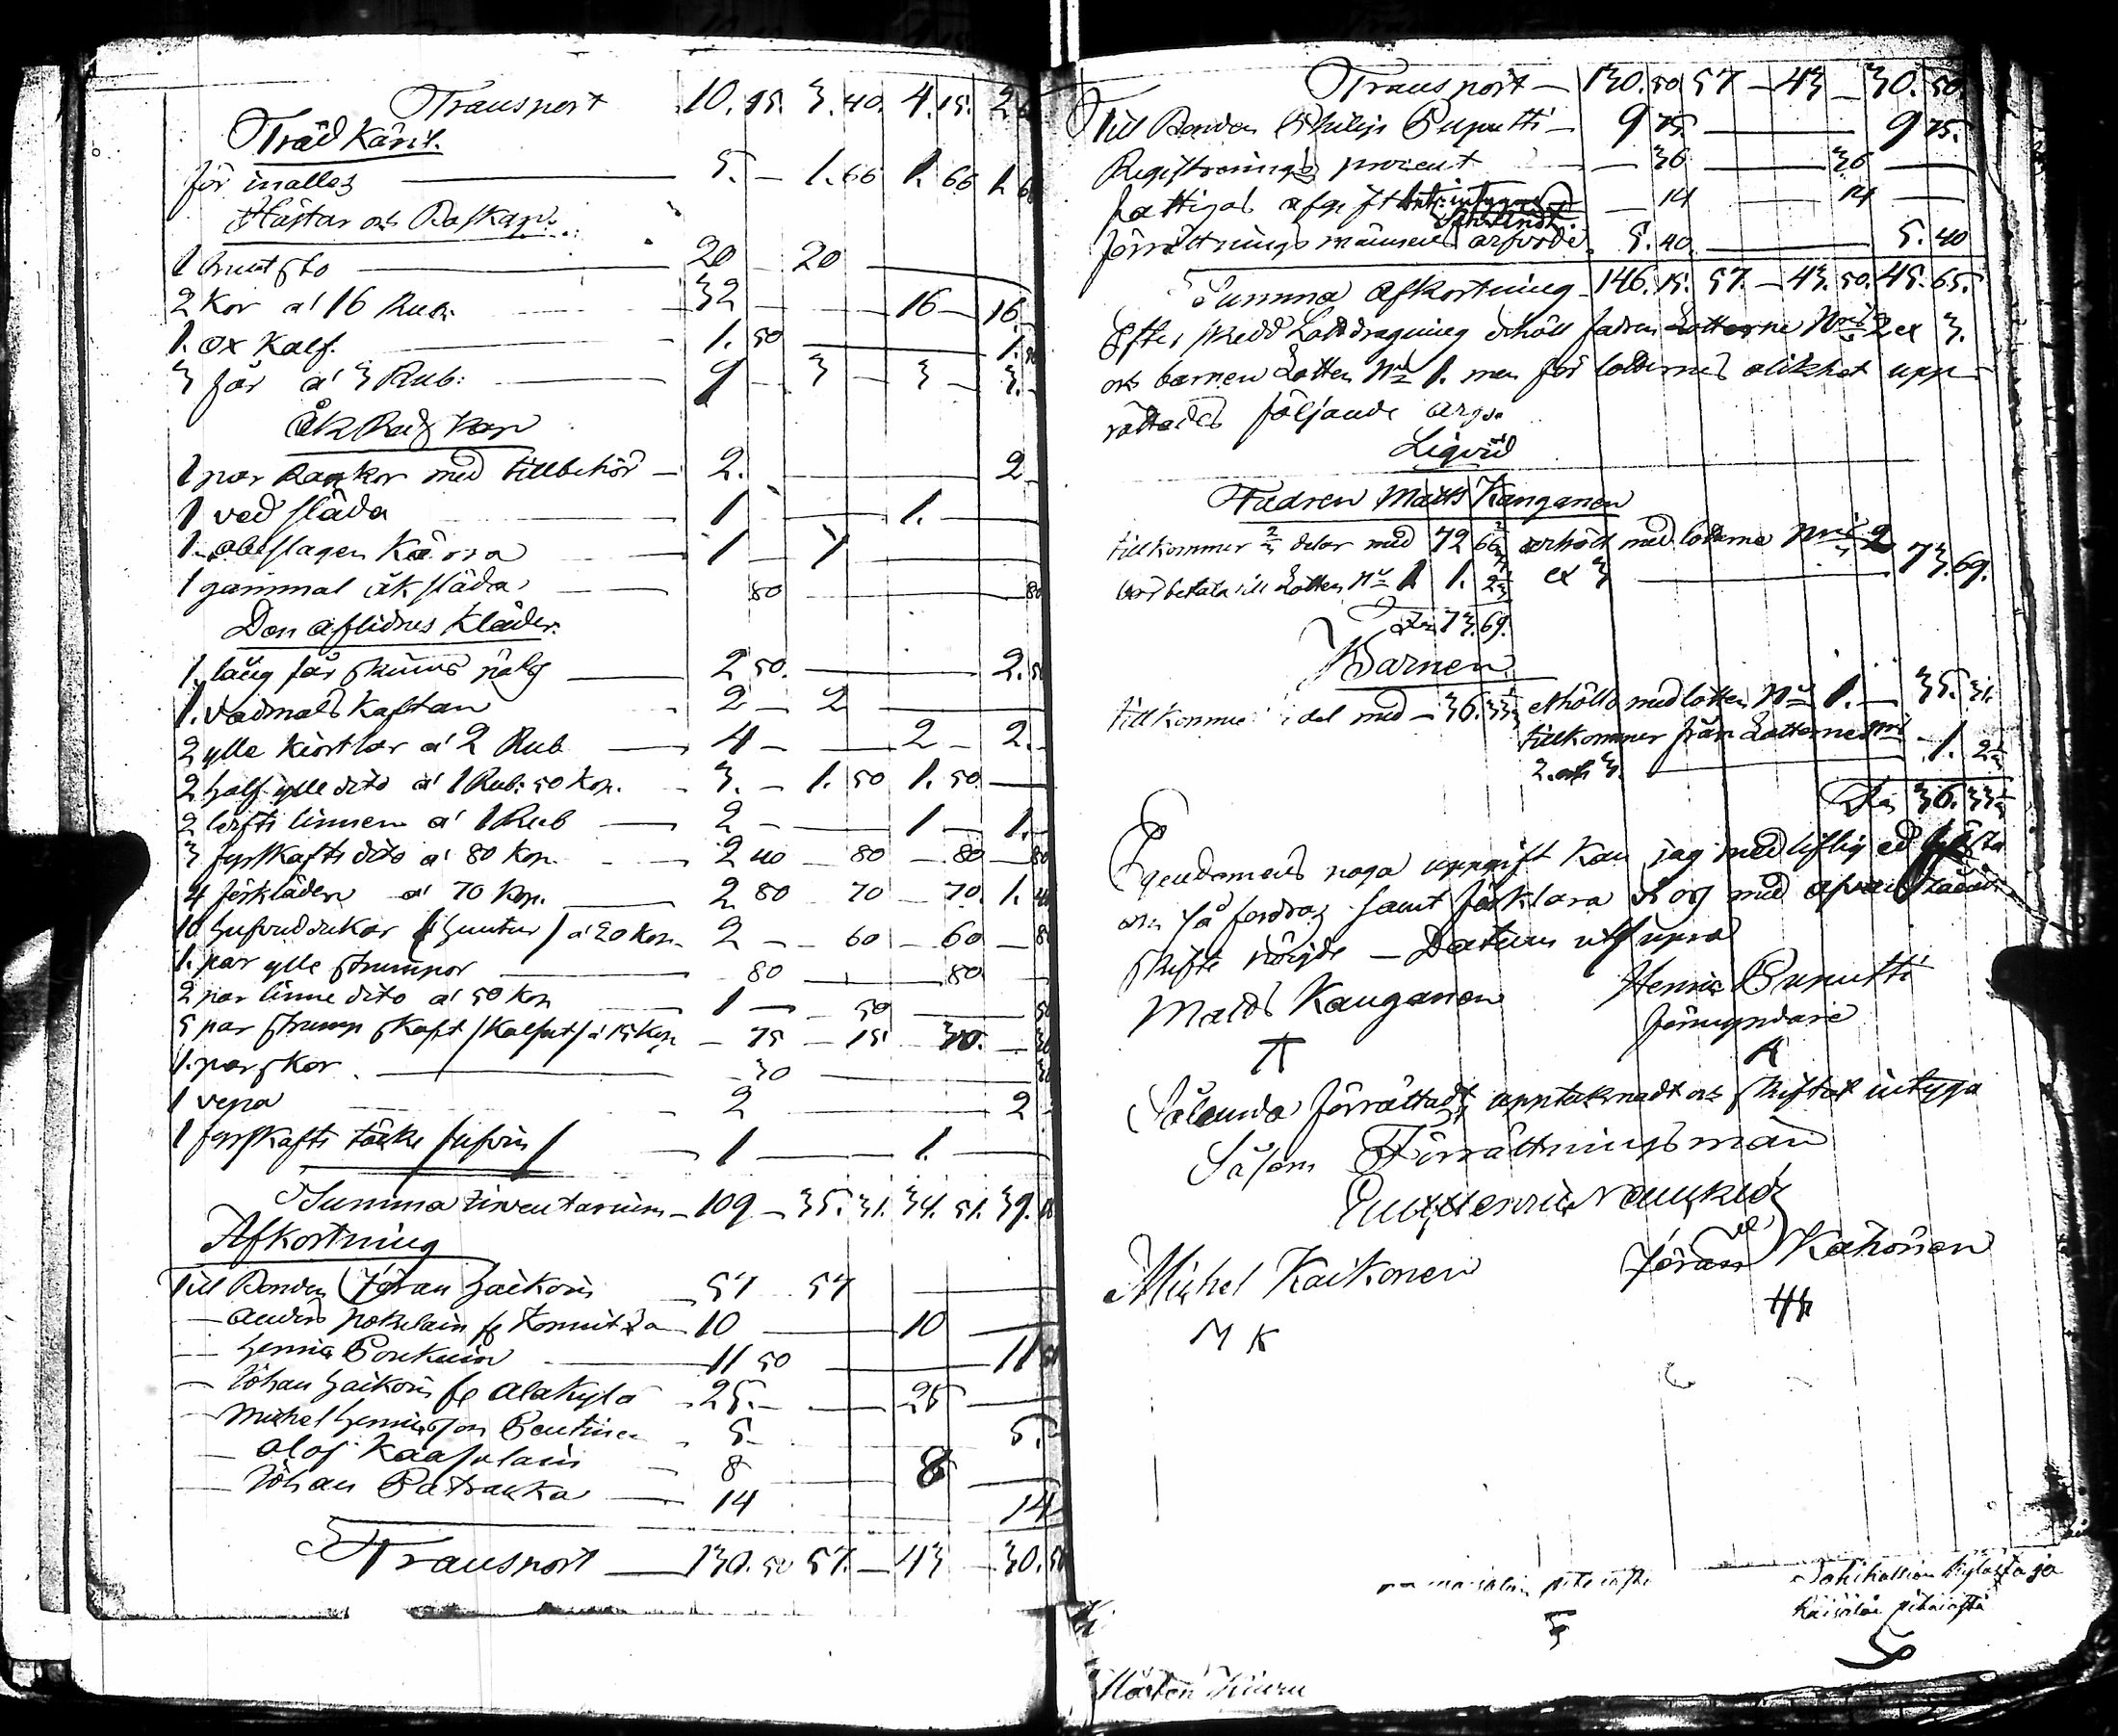 Transport 10. 15. 3. 40. 4. 15. 2 6
Träd Käril.
för inalles — 5. — 1. 66 1. 66 1. 6
Hästar och Boskap:
1 brunt sto — 20 — 20 —
2 Kor a' 16 Rub: — 32 — 16 — 16.
1. ox Kalf. — 1. 50 — 1. 50
3 får a' 3 Rub: — 9 — 3 — 3 — 3. —
Åk Redskap
1 par Rankor med tillbehör — 2. — 2 —
1 ved släda — 1 — 1. —
1. obeslagen Kärra — 1 — 1
1 gammal åk släda — 80 — 80
Den aflidnes Kläder.
1. lång får skinns päls — 2 50. — 2. 50
1. vadmals Kaftan — 2 — 2 —
2 ylle kiortlar a' 2 Rub — 4 — 2 — 2. —
2 half ylle dito a' 1 Rub: 50 Kop. — 3. — 1. 50 1. 50 —
2 lerfts linnen a' 1 Rub — 2 — 1 — 1. —
3 fyrskafts dito a' 80 Kop. — 2 40 — 80 — 80 — 80
4 förkläden a' 70 Kop. — 2 80 70 — 70. 1. 40
10 hufvuddukar /huntur/ a' 20 Kop. 2 — 60 — 60 — 80
1. par ylle strumpor — 80 — 80 —
2 par linne dito a' 50 Kop — 1 — 50 — 50
5 par strump skaft /Kalsut/ a' 15 Kop — 75 — 15 30. — 30
1. par skor — 30 — 30
1 vepa — 2 — 2
1 fyrskafts täcke — 1 — 1. —
Summa Inventarium — 109 — 35. 31. 34. 51. 39. 18
Afkortning
Till Bonden Jöran Haikoin 57 57 —
— Anders — 10 — 10 —
— Henric — 11 50 — 11 50
— Johan Haikoin fr Alakylä — 25. — 25 —
— Michel Henricsson — 5 — 5.
— Olof — 8 — 8 —
— Johan Patrauka — 14 — 14
Transport — 130. 50 57. — 43 — 30. 50
Transport — 130. 50 57 — 43 — 30. 50.
Till Bonden Philip Puputti — 9 75. — 9 75.
Registrerings procent — 36 — 36 —
fattigas afgift — 14 — 14 —
förrättnings männens arfvode 5. 40. — 5. 40
Summa afkortning — 146. 15. 57. — 43. 50. 45. 65.
Efter skedd Lottdragning erhöll fadren Lotterne Nris 2 et 3.
och barnen Lotten No 1. men för lotternes olikhet upp-
rättades följande
Liqvid
Fadren Matts Kanganen
tillkommer 2/3 delar med 72 66 2/3 erhöll med lotterne Nris 2
bör betala till Lotten No 1. 1. 2 1/3 et 3 — 73. 69.
73. 69.
Barnen
tillkommer 1/3 del med — 36. 33 1/3 erhöllo med lotten No 1. — 35. 31.
tillkommer från Lotterne Nris — 1. 2 1/3
2. och 3. —
36. 33 1/3
Egendomens noga uppgift Kan jag med liflig ed fästa
om så fordras samt förklara oss med ofvanstående
skifte nöigde — Datum utsupra
Matts Kanganen Henric Puputti
förmyndare
Sålunda förrättadt, upptecknadt och skiftat intyga
Såsom Förrättningsmän
Michel Kaikonen Jöran Kähönen
M K
Kaisälän pitäiästä